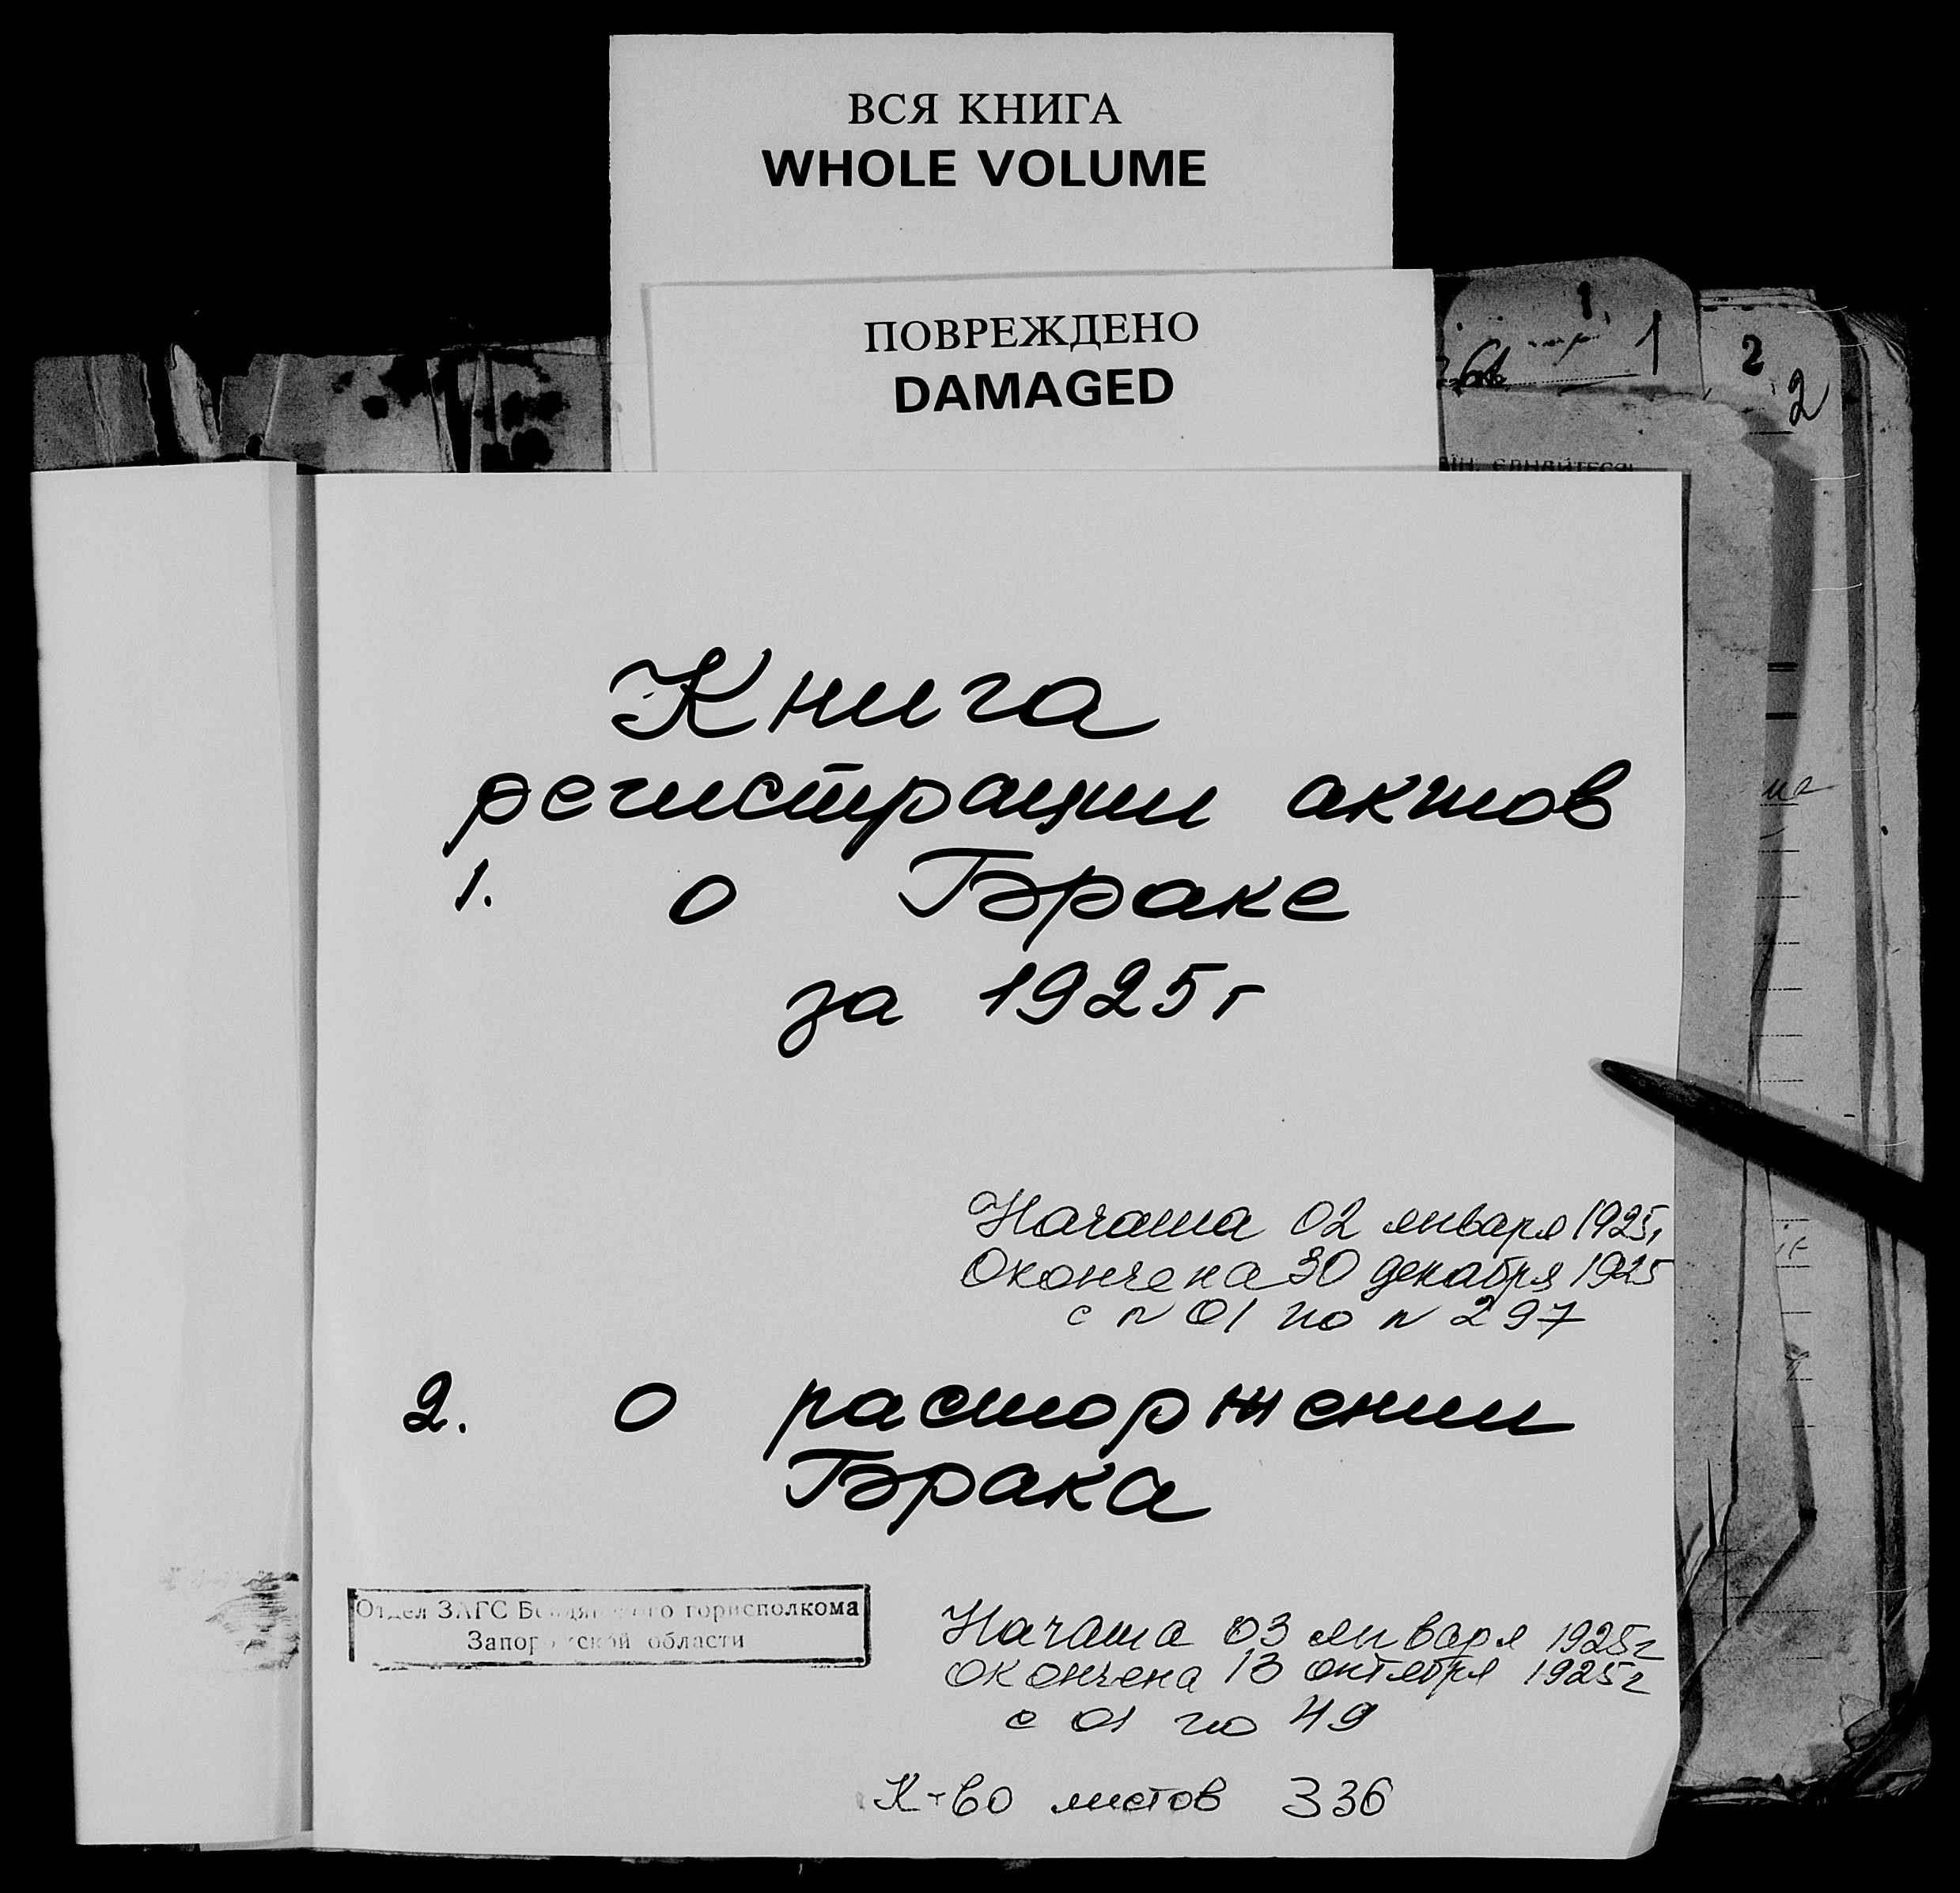 ВСЯ КНИГА
WHOLE VOLUME
ПОВРЕЖДЕНО
DAMAGED
1
2
2
Книга
регистрации актов
1. о Браке
за 1925г
Начата 02 января 1925г
Окончена 30 декабря 1925
с N 01 по N 297
2. о расторжении
Брака
Отдел ЗАГС Бердянского горисполкома
Запорожской области
Начата 03 января 1925г
окончена 13 октября 1925г
с 01 по 49
К-во листов 336